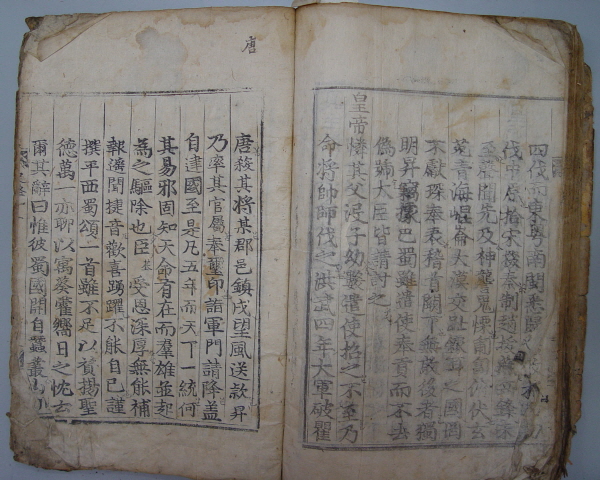 四伐而東粤南閩悉
伐中原拾宋
至
菟青海崐崙大漠交趾之國罔
不獻琛奉表稽首闕下無敢後者獨
明昇竊據巴蜀雖遣使奉貢而不去
偽號大臣皆請討之
皇帝憐其父没子幼數遣使招之不至乃
命將帥師伐之洪武四年大軍破瞿
唐
唐殺其將某郡邑鎮戍望風送款昇
乃率其官屬奉璽印詣軍門請降蓋
自建國至是凡五年而天下一統何
其易邪固知天命有在而羣雄並起
為之驅除也臣受恩深厚無能補
報遙聞捷音歡喜踴躍不能自已謹
撰平西蜀頌一首雖不足以賛揚聖
德萬一亦聊以寓葵藿嚮日之忱云
爾其辭曰惟彼蜀國開自蠶叢山